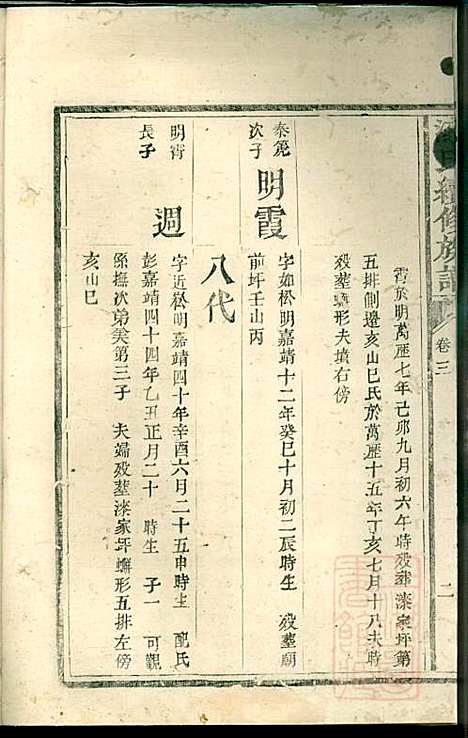 續修族譜
卷三
二
霄於明萬歷七年己卯九月初六午時歿葬漆家坪第
五排側邊亥山巳氏於萬歷十五年丁亥七月十八未時
歿葬蠏形夫墳右傍
泰箎
次子
明霞
字如松明嘉靖十二年癸巳十月初二辰時生 歿葬廟
前坪壬山丙
八代
明霄
長子
週
字近松明嘉靖四十年辛酉六月二十五申時生 配氏
彭嘉靖四十四年乙丑正月二十 時生 子一 可觀
係撫次弟美第三子 夫婦歿葬漆家坪蠏形五排左傍
亥山巳